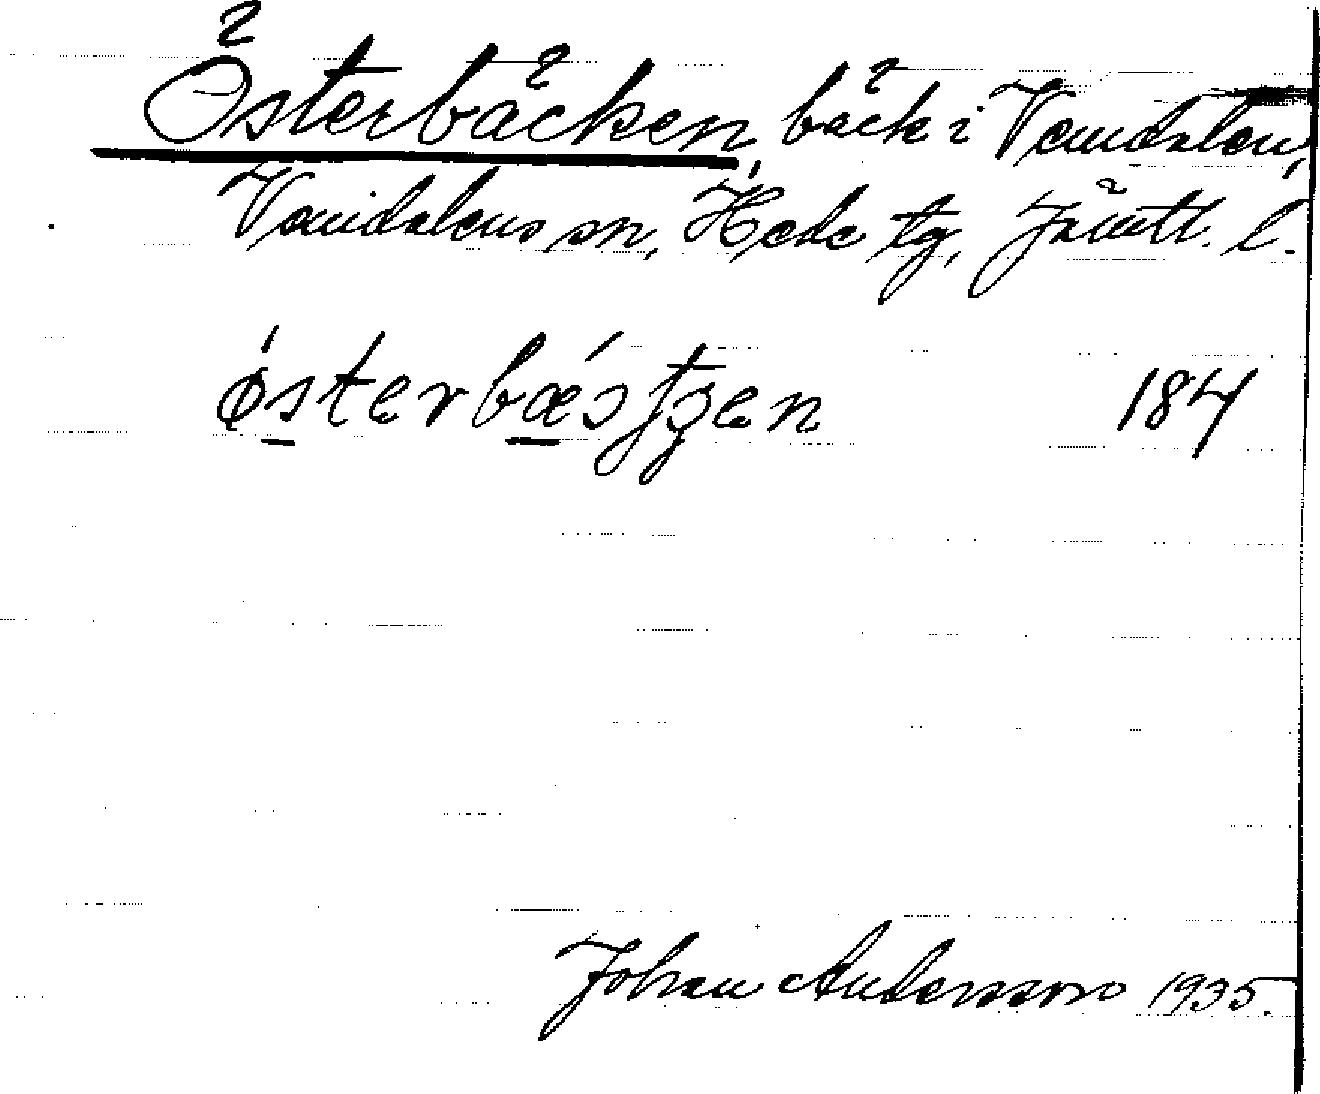 Österbäcken, bäck i Vemdalen,
Vemdalens sn, Hede tg, Jämtl. l.
østerbæstʃen 184
Johan Andersson 1935.